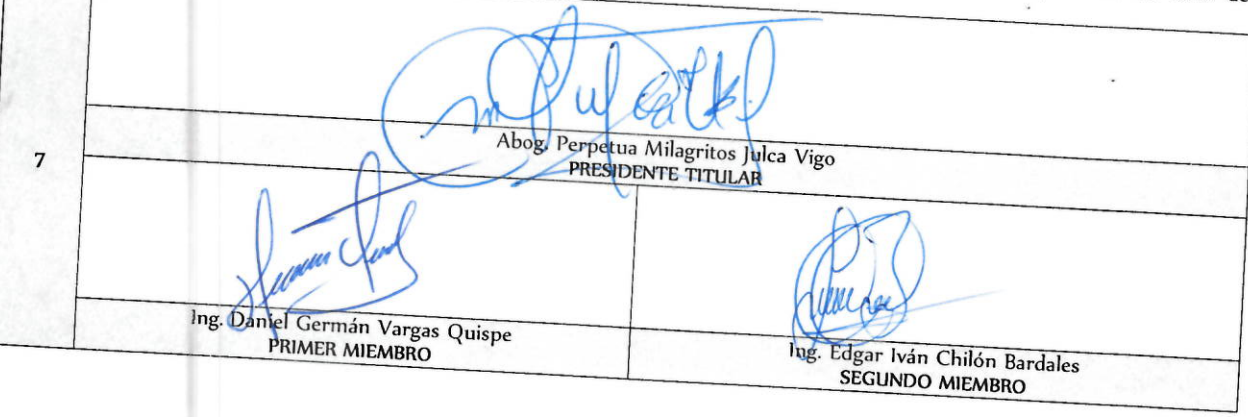 7
Abog. Perpetua Milagritos Julca Vigo
PRESIDENTE TITULAR
Ing. Daniel Germán Vargas Quispe
PRIMER MIEMBRO
Ing. Edgar Iván Chilón Bardales
SEGUNDO MIEMBRO